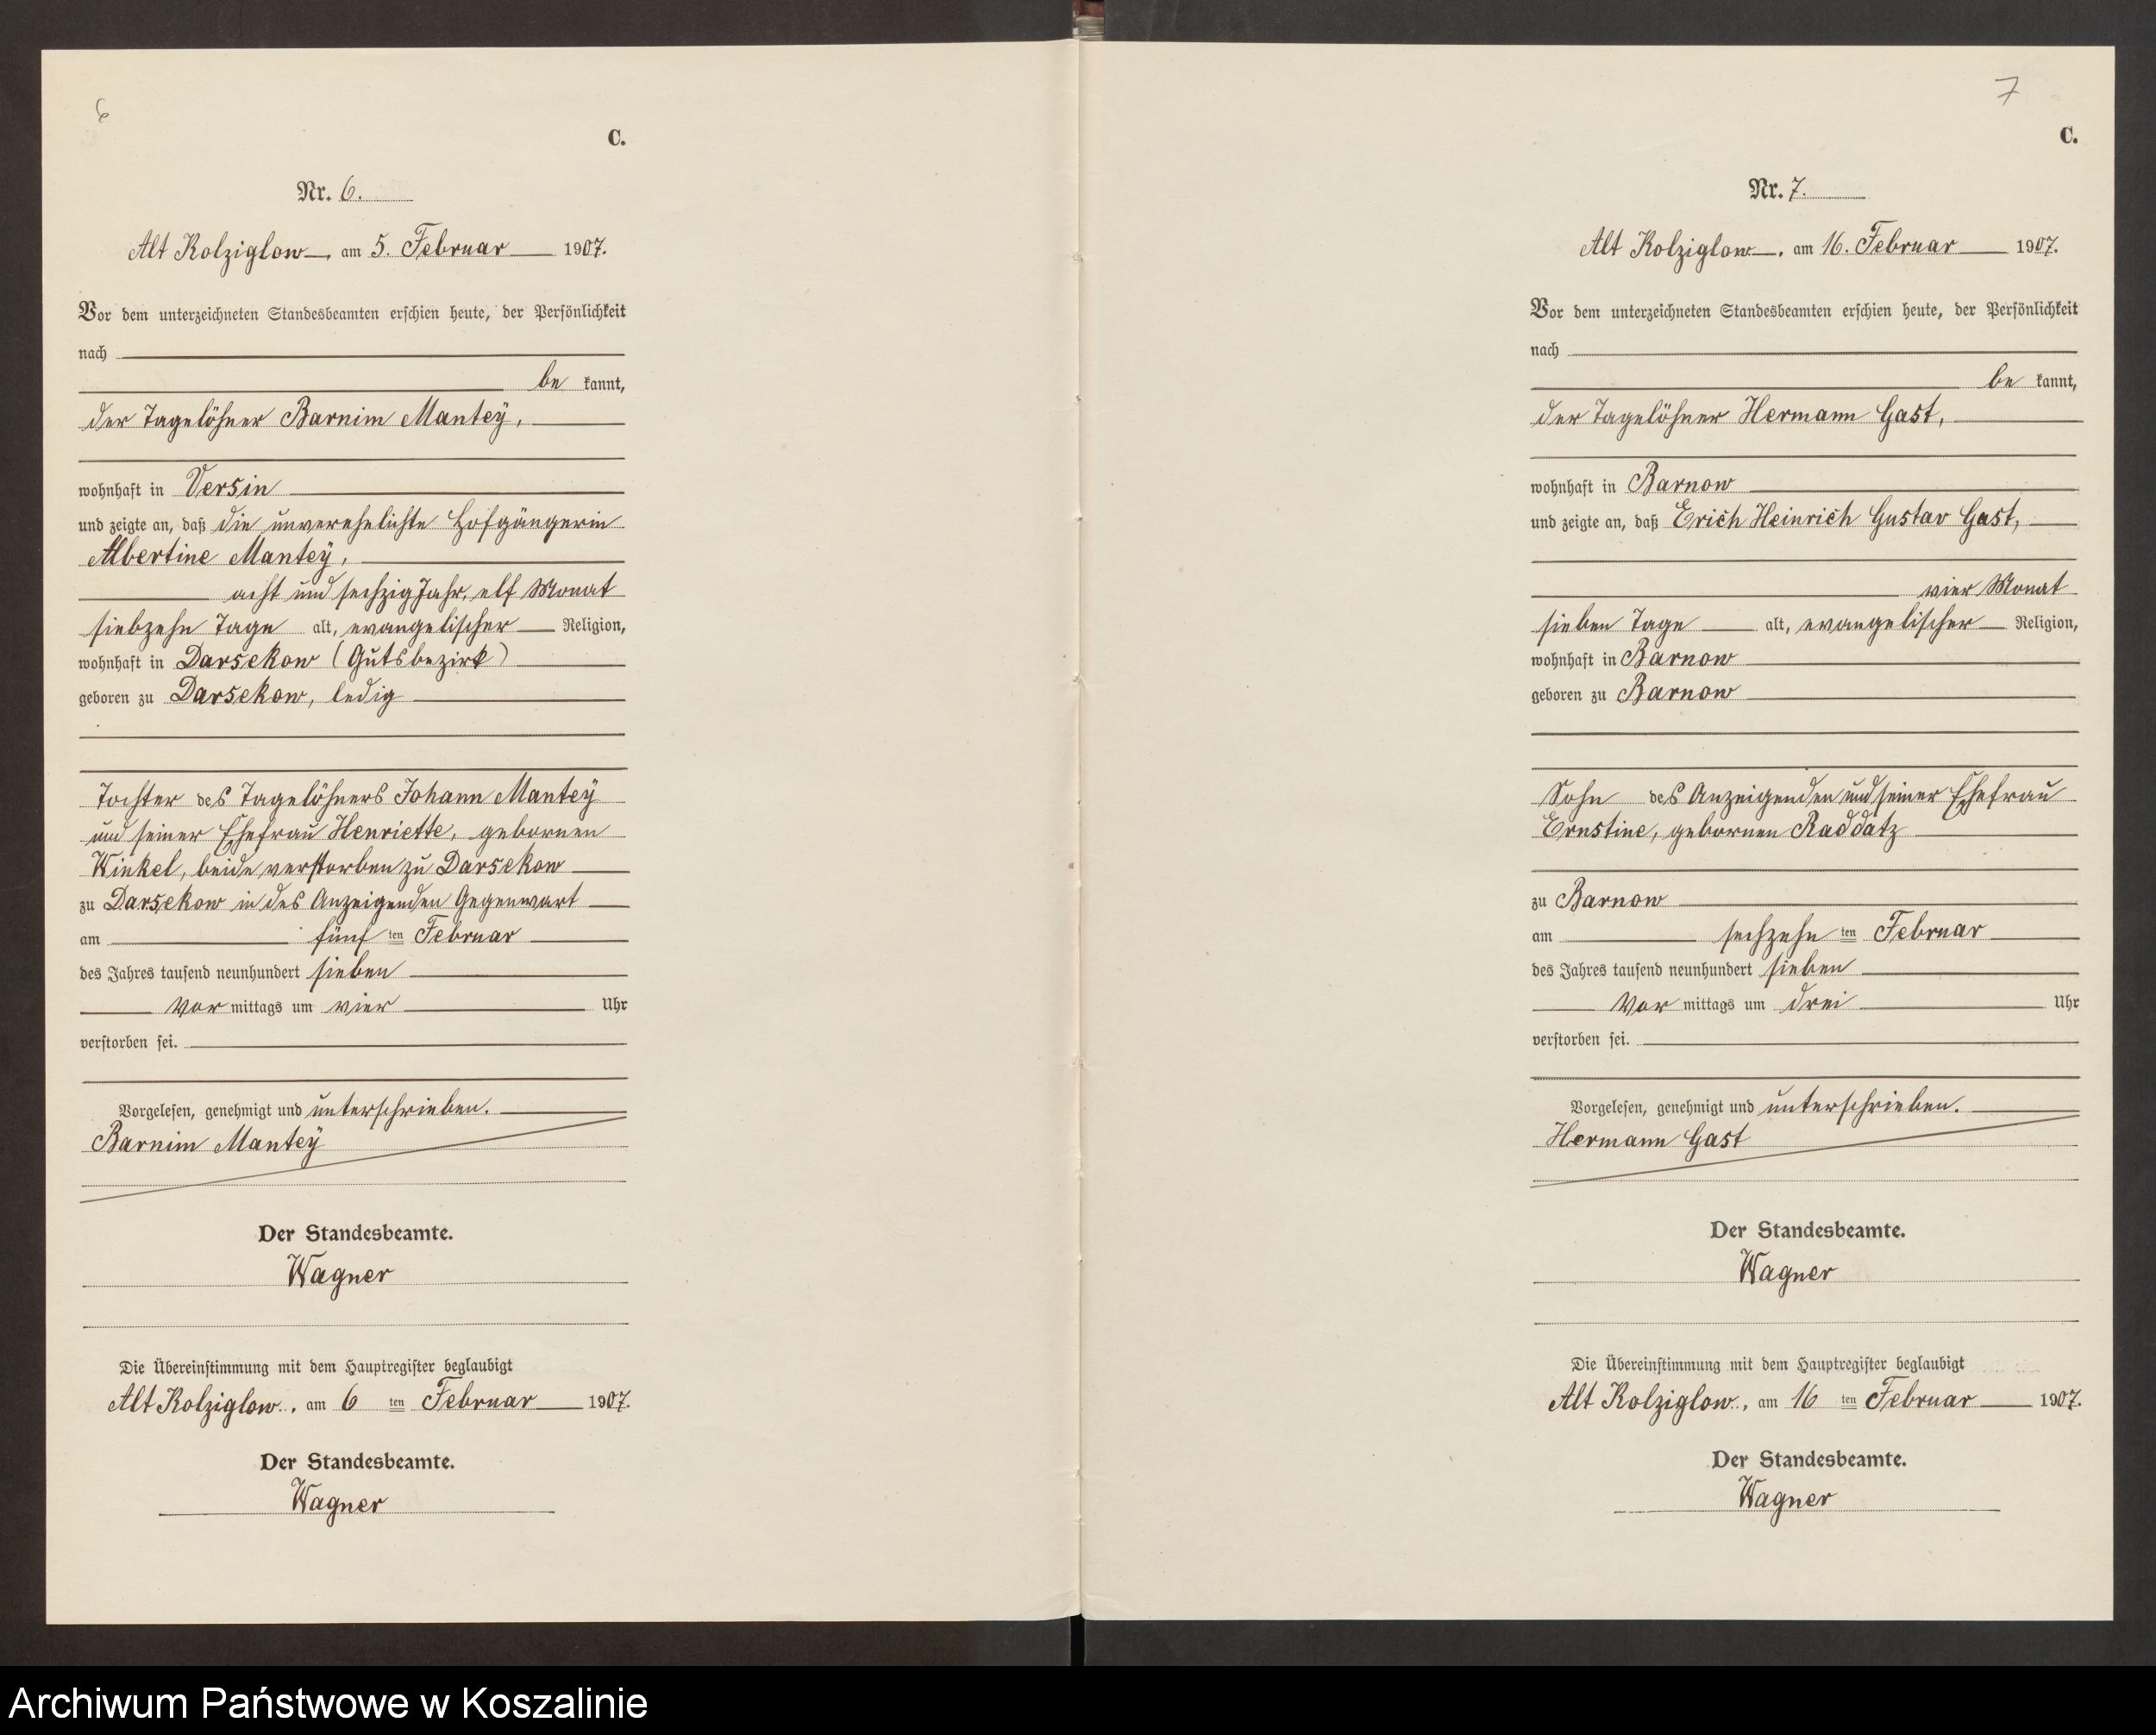 6
C.
Nr. 6.
Alt Kolziglow, am 5. Februar 1907.
Vor dem unterzeichneten Standesbeamten erschien heute, der Persönlichkeit
nach
be kannt,
der Tagelöhner Barnim Mantey,
wohnhaft in Versin
und zeigte an, daß die unverehelichte Hofgängerin
Albertine Mantey,
acht und sechzig Jahr, elf Monat
siebzehn Tage alt, evangelischer Religion,
wohnhaft in Darsekow (Gutsbezirk)
geboren zu Darsekow, ledig
Tochter des Tagelöhners Johann Mantey
und seiner Ehefrau Henriette, gebornen
Winkel, beide verstorben zu Darsekow
zu Darsekow in des Anzeigenden Gegenwart
am fünf ten Februar
des Jahres tausend neunhundert sieben
Vor mittags um vier Uhr
verstorben sei.
Vorgelesen, genehmigt und unterschrieben.
Barnim Mantey
Der Standesbeamte.
Wagner
Die Übereinstimmung mit dem Hauptregister beglaubigt
Alt Kolziglow, am 6 ten Februar 1907.
Der Standesbeamte.
Wagner
7
C.
Nr. 7.
Alt Kolziglow, am 16. Februar 1907.
Vor dem unterzeichneten Standesbeamten erschien heute, der Persönlichkeit
nach
be kannt,
der Tagelöhner Hermann Gast,
wohnhaft in Barnow
und zeigte an, daß Erich Heinrich Gustav Gast,
vier Monat
sieben Tage alt, evangelischer Religion,
wohnhaft in Barnow
geboren zu Barnow
Sohn des Anzeigenden und seiner Ehefrau
Ernstine, gebornen Raddatz
zu Barnow
am sechzehn ten Februar
des Jahres tausend neunhundert sieben
Vor mittags um drei Uhr
verstorben sei.
Vorgelesen, genehmigt und unterschrieben.
Hermann Gast
Der Standesbeamte.
Wagner
Die Übereinstimmung mit dem Hauptregister beglaubigt
Alt Kolziglow, am 16 ten Februar 1907.
Der Standesbeamte.
Wagner
Archiwum Państwowe w Koszalinie